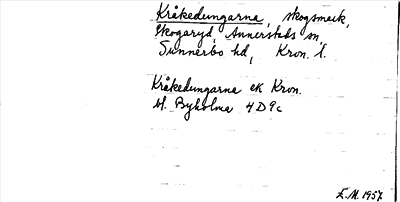 Kråkedungarna, skogsmark,
Skogaryd, Annerstads sn,
Sunnerbo hd, Kron. l.
Kråkedungarna ek Kron.
bl. Byholma 4D9c
E.M. 1957